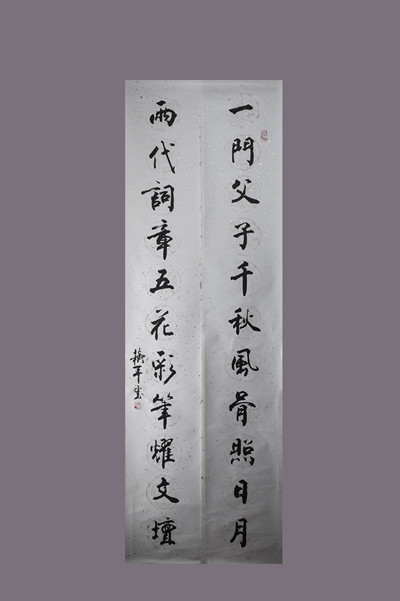 一門父子千秋風骨照日月
兩代詞章五花彩筆耀文壇